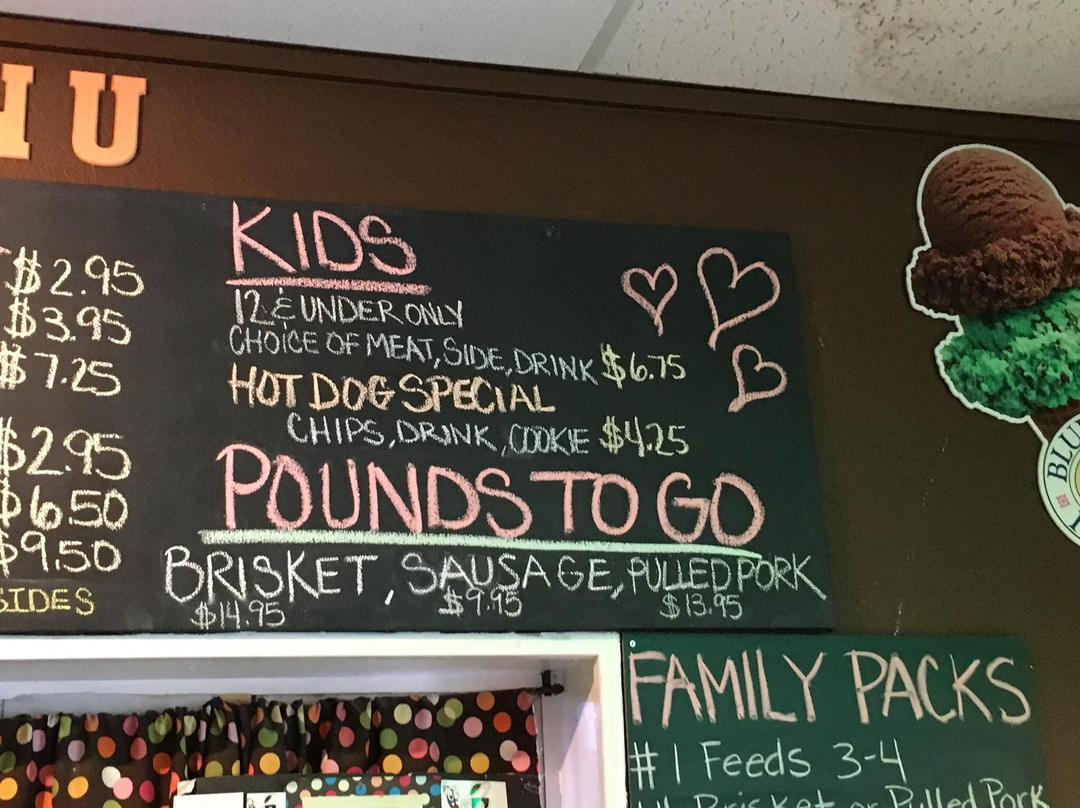 NU
$2.95
$3.95
$7.25
$2.95
$6.50
$9.50
SIDES
KIDS
12 & UNDER ONLY
CHOICE OF MEAT, SIDE, DRINK $6.75
HOT DOG SPECIAL
CHIPS, DRINK, COOKIE $4.25
POUNDS TO GO
BRISKET, SAUSAGE, PULLED PORK
$14.95 $9.95 $13.95
FAMILY PACKS
#1 Feeds 3-4
Brisket or Pulled Pork
BLU